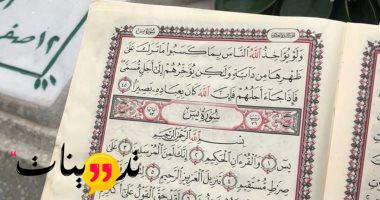 وَلَوْ يُؤَاخِذُ ٱللَّهُ ٱلنَّاسَ بِمَا كَسَبُوا۟ مَا تَرَكَ عَلَىٰ
ظَهْرِهَا مِن دَآبَّةٍ وَلَٰكِن يُؤَخِّرُهُمْ إِلَىٰٓ أَجَلٍ مُّسَمًّى
فَإِذَا جَآءَ أَجَلُهُمْ فَإِنَّ ٱللَّهَ كَانَ بِعِبَادِهِۦ بَصِيرًۢا ٤٥
سُورَةُ يسٓ
بِسْمِ ٱللَّهِ ٱلرَّحْمَٰنِ ٱلرَّحِيمِ
يسٓ ١ وَٱلْقُرْءَانِ ٱلْحَكِيمِ ٢ إِنَّكَ لَمِنَ ٱلْمُرْسَلِينَ ٣ عَلَىٰ
صِرَٰطٍ مُّسْتَقِيمٍ ٤ تَنزِيلَ ٱلْعَزِيزِ ٱلرَّحِيمِ ٥
تدوينات